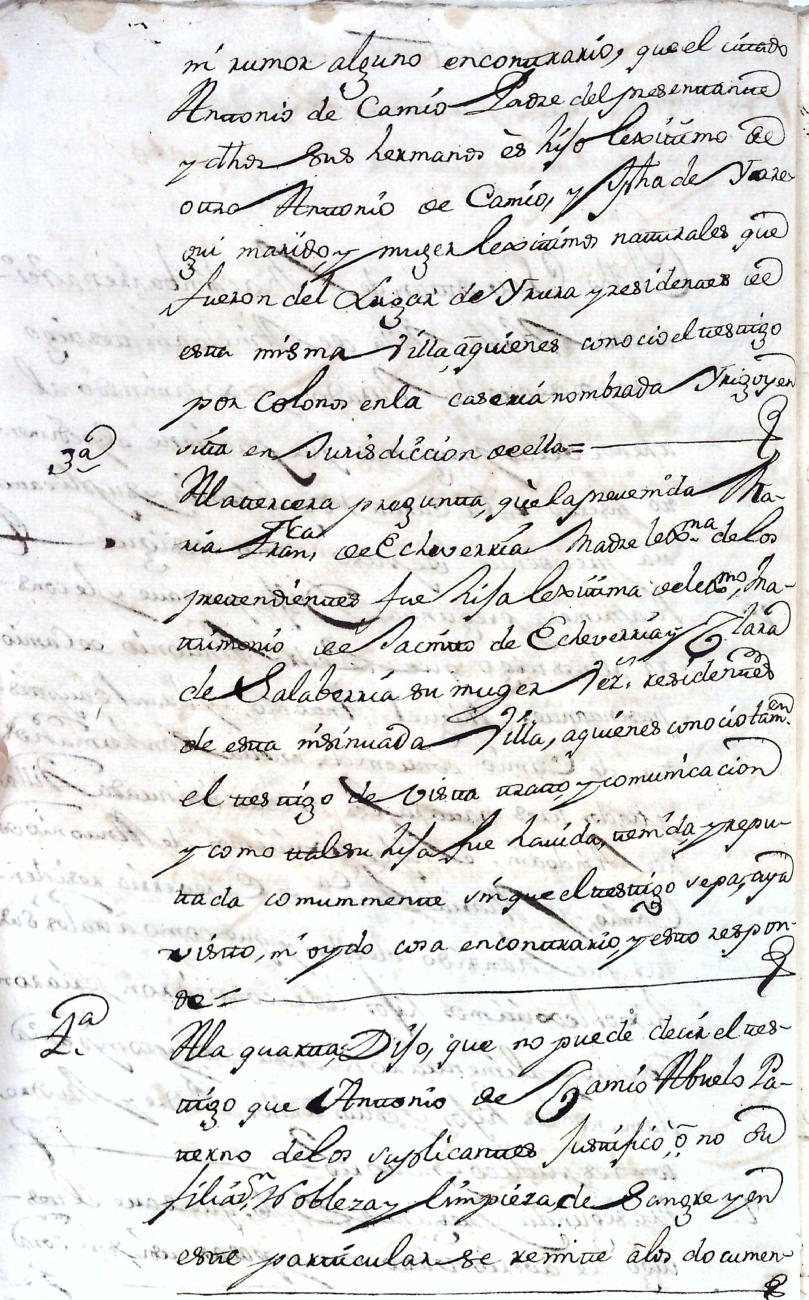 ni rumor alguno encontrario, que el citado
Antonio de Camio Padre del presentante
y dhos sus hermanos ès hijo lexitimo de
otro Antonio de Camio, y Jpha de Yrare-
gui marido, y muger lexitimos naturales que
fueron del Lugar de Yrura y residentes de
esta misma Villa, a quienes conocio el testigo
por colonos en la caseria nombrada Yrigoyen
sita en Jurisdiccion de ella =
3ª
A la tercera pregunta, què la prevenida Ma-
ria Franca de Echeverria Madre lexma de los
pretendientes fue hija lexitima de lexmo Ma-
trimonio de Jacinto de Echeverria y Clara
de Salaberria su muger Vezs residentes
de esta insinuada Villa, a quienes conocio tamen
el testigo de vista trato, y comunicacion
y como tal su hija fue havida, tenida, y repu-
tada comunmente sin que el testigo sepa, aya
visto, ni oydo cosa encontrario, y esto respon-
de =
4ª
A la quarta, Dijo, que no puede decir el tes-
tigo que Antonio de Camio Abuelo Pa-
terno de los suplicantes Justificò, ò no su
filiaon Nobleza y limpieza de Sangre y en
este particular se remite à los documen-